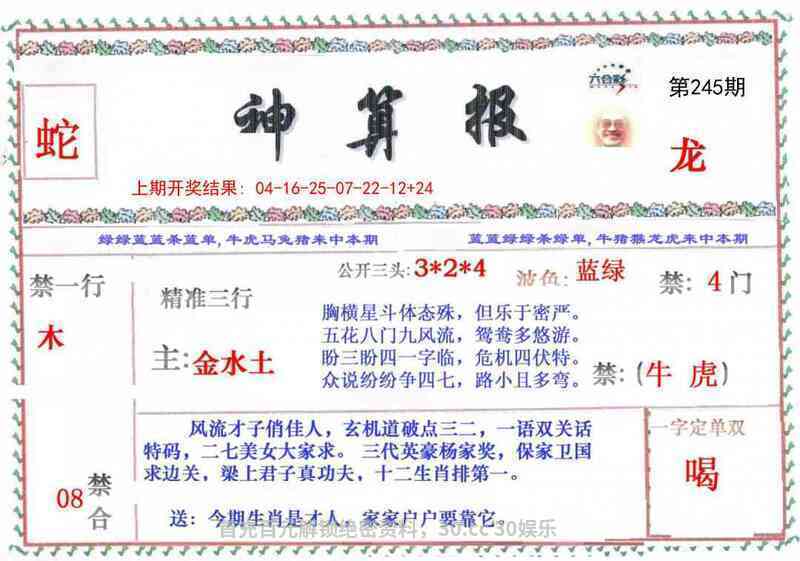 六合彩
第245期
神算报
蛇
龙
上期开奖结果：04-16-25-07-22-12+24
绿绿蓝蓝条蓝单,牛虎马兔猪来中本期
蓝蓝绿绿条绿单,牛猪猴龙虎来中本期
禁一行
木
精准三行
主:金水土
公开三头:3*2*4
波色:蓝绿
禁:4门
胸横星斗体态殊，但乐于密严。
五花八门九风流，鸳鸯多悠游。
盼三盼四一字临，危机四伏特。
众说纷纷争四七，路小且多弯。
禁:(牛 虎)
08
禁合
风流才子俏佳人，玄机道破点三二，一语双关话
特码，二七美女大家求。三代英豪杨家奖，保家卫国
求边关，梁上君子真功夫，十二生肖排第一。
送：今期生肖是才人，家家户户要靠它。
首充百元解锁绝密资料，30.cc 30娱乐
一字定单双
喝